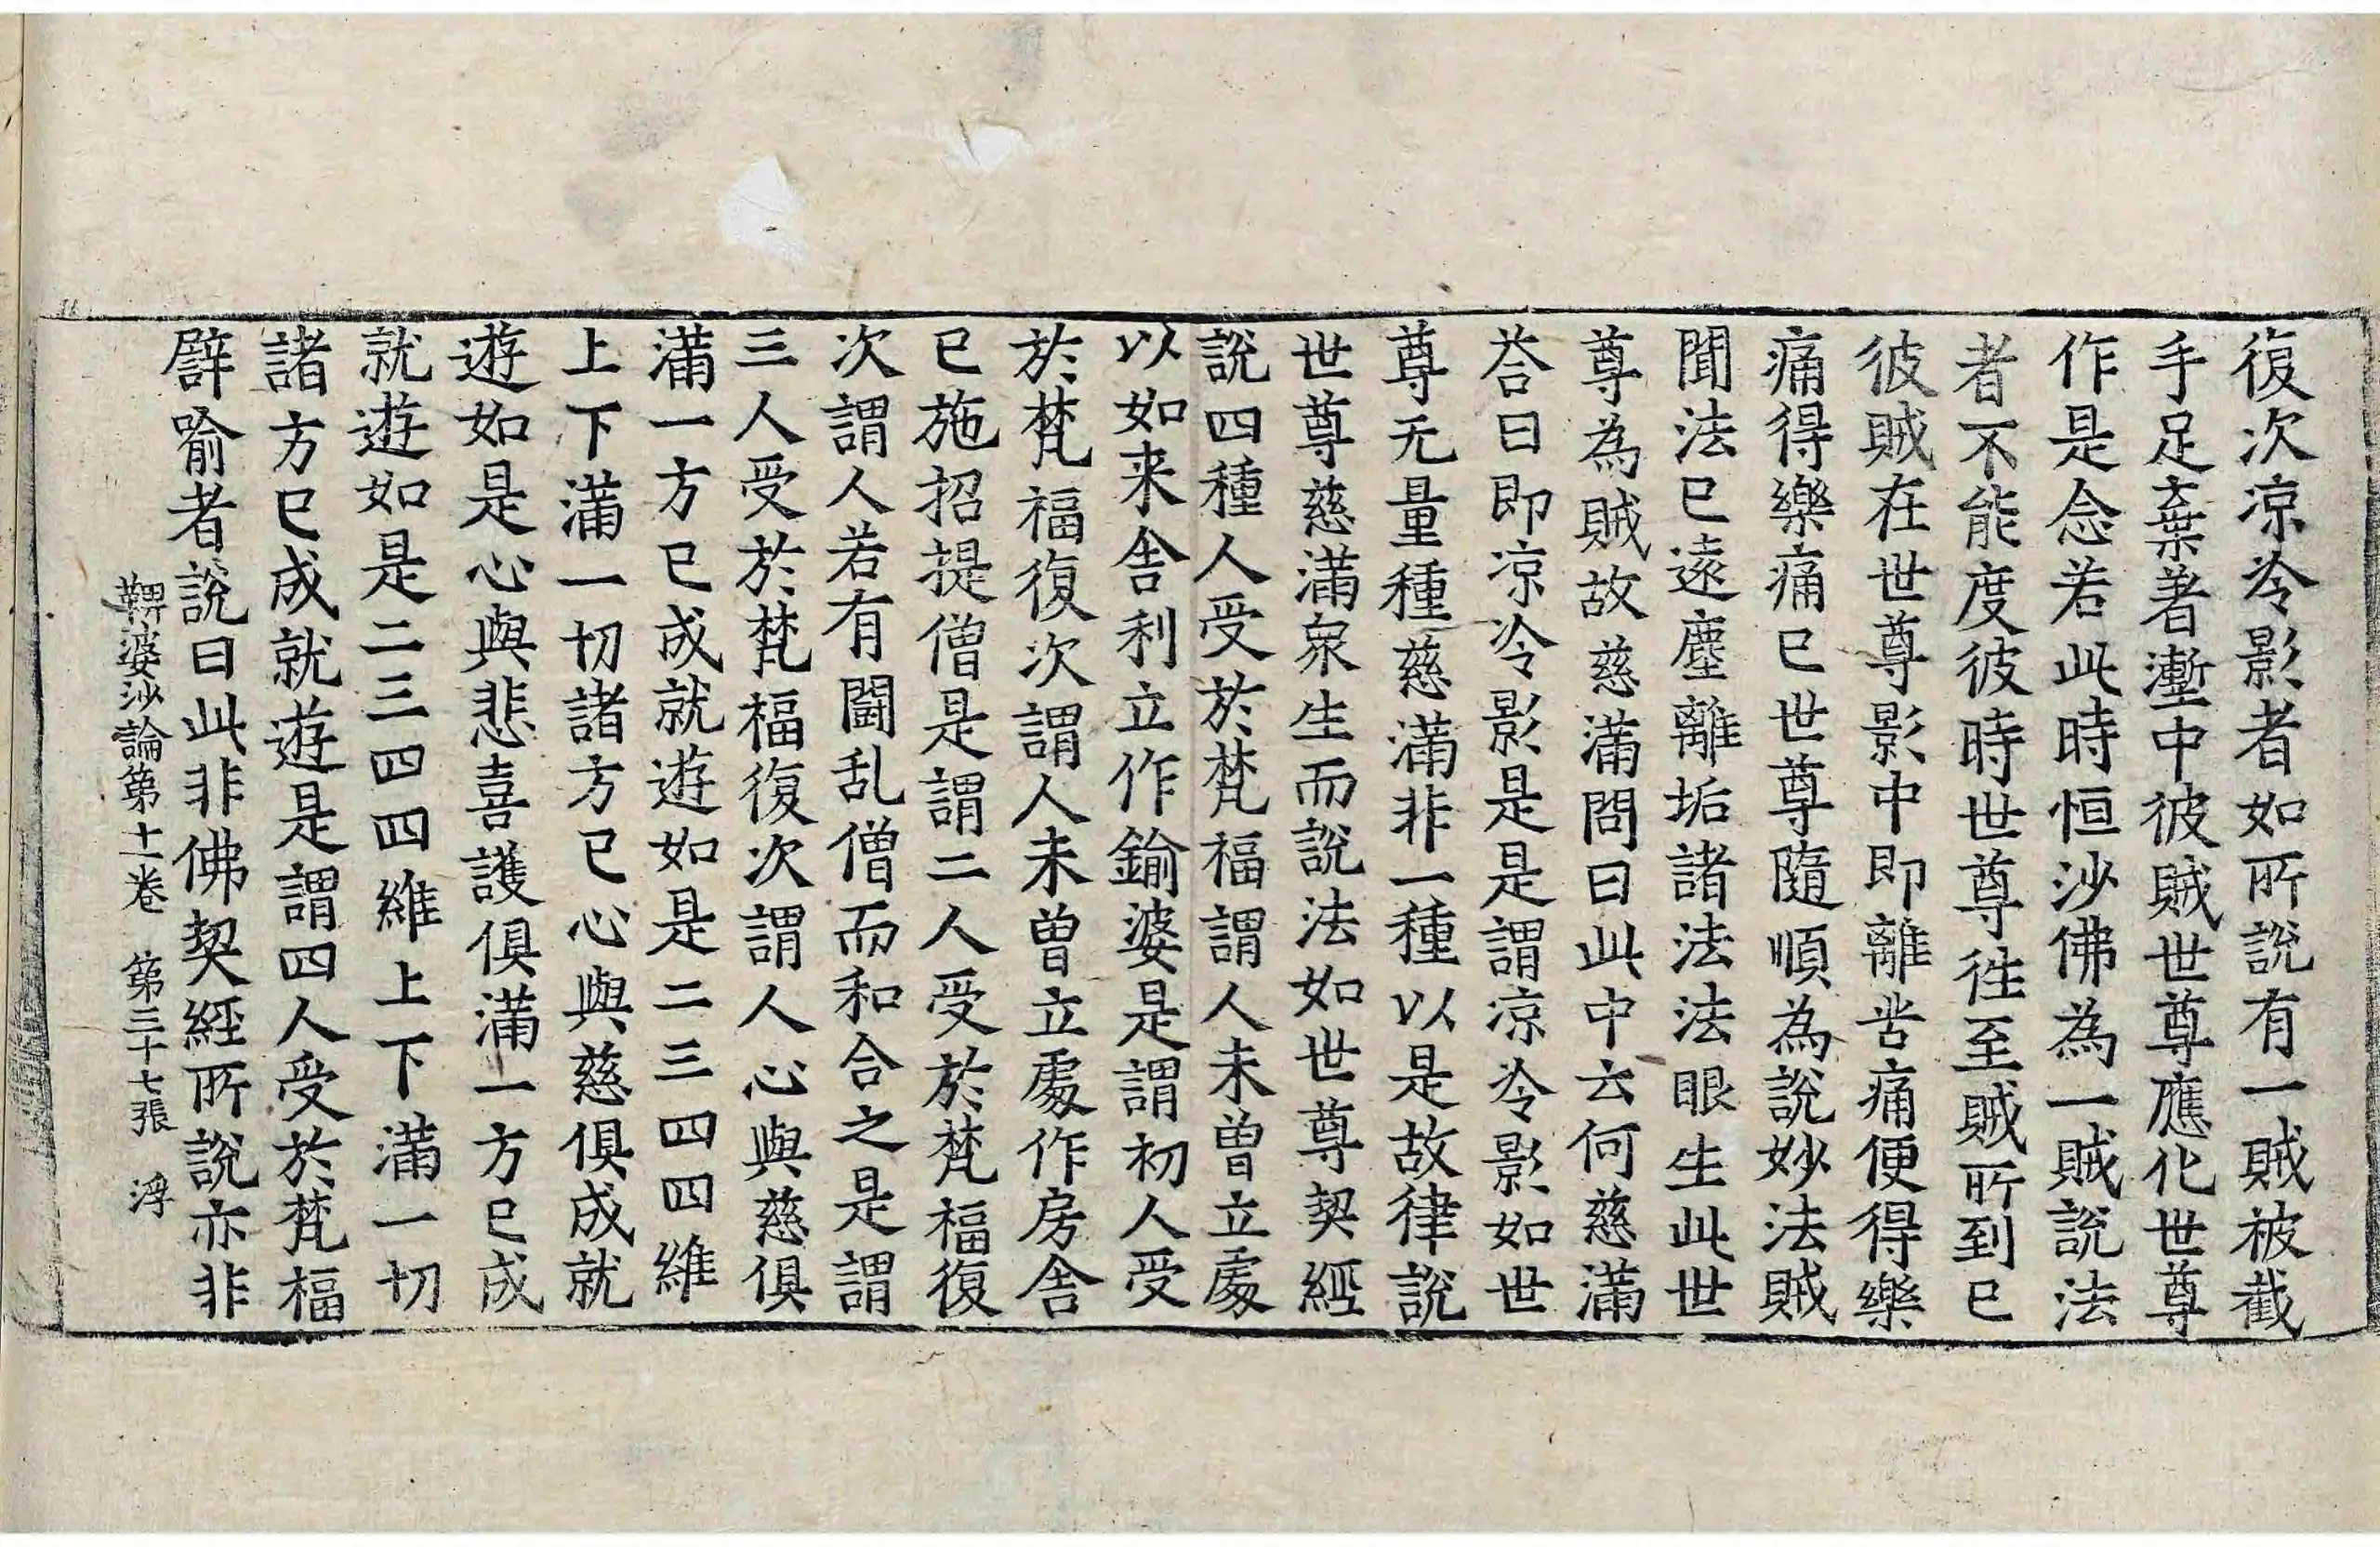 復次凉冷影者如所說有一賊被截
手足棄著壍中彼賊世尊應化世尊
作是念若此時恒沙佛為一賊說法
者不能度彼時世尊徃至賊所到已
彼賊在世尊影中即離苦痛便得樂
痛得樂痛已世尊隨順為說妙法賊
聞法已遠塵離垢諸法法眼生此世
尊為賊故慈滿問曰此中云何慈滿
荅曰即凉冷影是是謂凉冷影如世
尊无量種慈滿非一種以是故律說
世尊慈滿衆生而說法如世尊契經
說四種人受於梵福謂人未曾立處
以如来舍利立作鍮婆是謂初人受
於梵福復次謂人未曾立處作房舍
已施招提僧是謂二人受於梵福復
次謂人若有鬪乱僧而和合之是謂
三人受於梵福復次謂人心與慈俱
滿一方已成就遊如是二三四四維
上下滿一切諸方已心與慈俱成就
遊如是心與悲喜護俱滿一方已成
就遊如是二三四四維上下滿一切
諸方已成就遊是謂四人受於梵福
譬喻者說曰此非佛契經所說亦非
鞞婆沙論第十一卷 第三十七張 浮